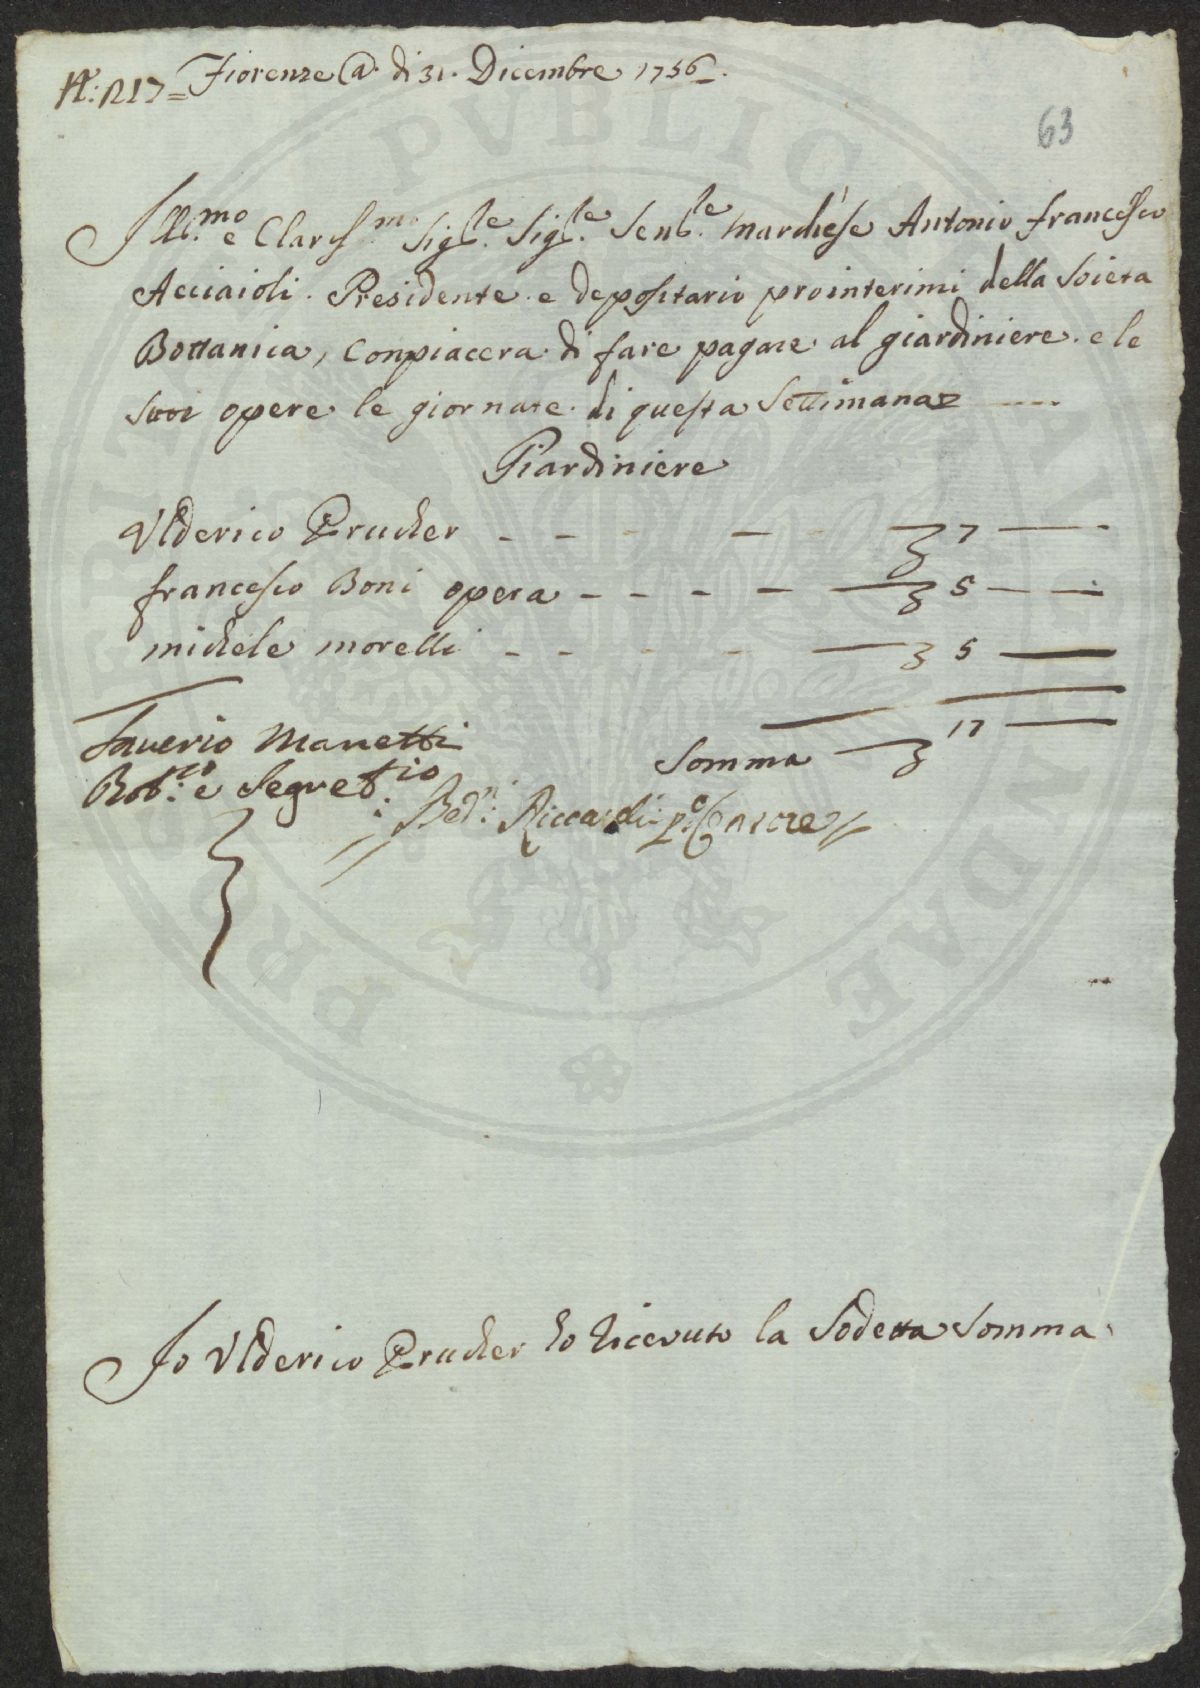 N: 217 = Fiorenze @ di 31. Dicembre 1756.
63
Ill.mo e Clariss.mo Sig.re Sig.re Sen.re Marchese Antonio francesco
Acciaioli. Presidente e depositario prointerimi della Societa
Bottanica, Conpiacera di fare pagare al giardiniere e le
suoi opere le giornate di questa Settimana
Giardiniere
Ulderico Prucher - - - 7 —
francesco Boni opera - - - - 5 —
michele morelli - - - 5 —
Somma 17 —
Saverio Manetti
Bot.co e Segret.io
Bed.: Riccardi P.o Cancre
Io Ulderico Prucher ho Ricevuto la Sodetta Somma
PRO PUBLICA